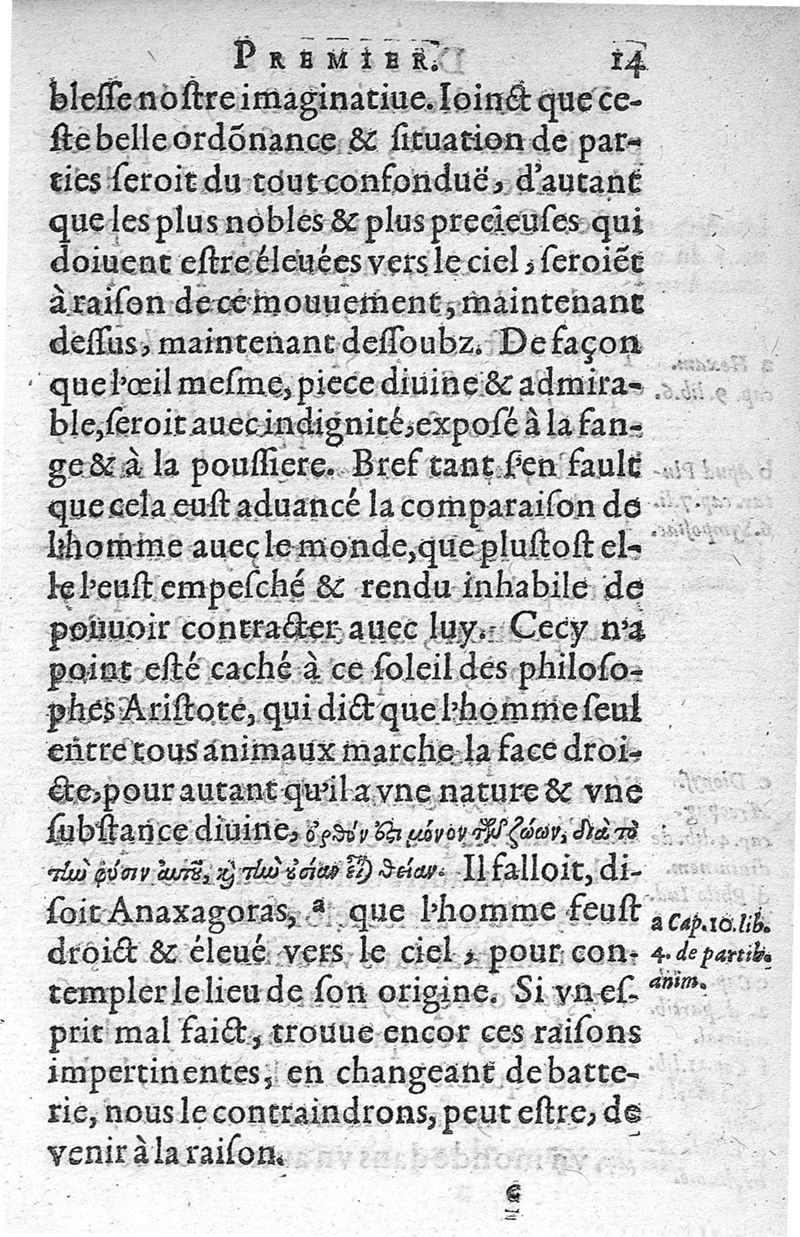 PREMIER. 14
bleſſe noſtre imaginatiue. Ioinct que ce-
ſte belle ordõnance & ſituation de par-
ties ſeroit du tout confonduë, d'autant
que les plus nobles & plus precieuſes qui
doiuent eſtre éleuées vers le ciel, ſeroiẽt
à raiſon de ce mouuement, maintenant
deſſus, maintenant deſſoubz. De façon
que l'œil meſme, piece diuine & admira-
ble, ſeroit auec indignité, expoſé à la fan-
ge & à la pouſſiere. Bref tant ſ'en fault
que cela euſt aduancé la comparaiſon de
l'homme auec le monde, que pluſtoſt el-
le l'euſt empeſché & rendu inhabile de
pouuoir contracter auec luy. Cecy n'a
point eſté caché à ce ſoleil des philoſo-
phes Ariſtote, qui dict que l'homme ſeul
entre tous animaux marche la face droi-
cte, pour autant qu'il a vne nature & vne
ſubſtance diuine, ὀρθόν ἐστι μόνον τῶν ζώων, διὰ τὸ
τὴν φύσιν αὐτοῦ, καὶ τὴν οὐσίαν εἶναι θείαν. Il falloit, di-
ſoit Anaxagoras, a que l'homme feuſt
droict & éleué vers le ciel, pour con-
templer le lieu de ſon origine. Si vn eſ-
prit mal faict, trouue encor ces raiſons
impertinentes, en changeant de batte-
rie, nous le contraindrons, peut eſtre, de
venir à la raiſon.
a Cap. 10. lib.
4. de partib.
anim.
c